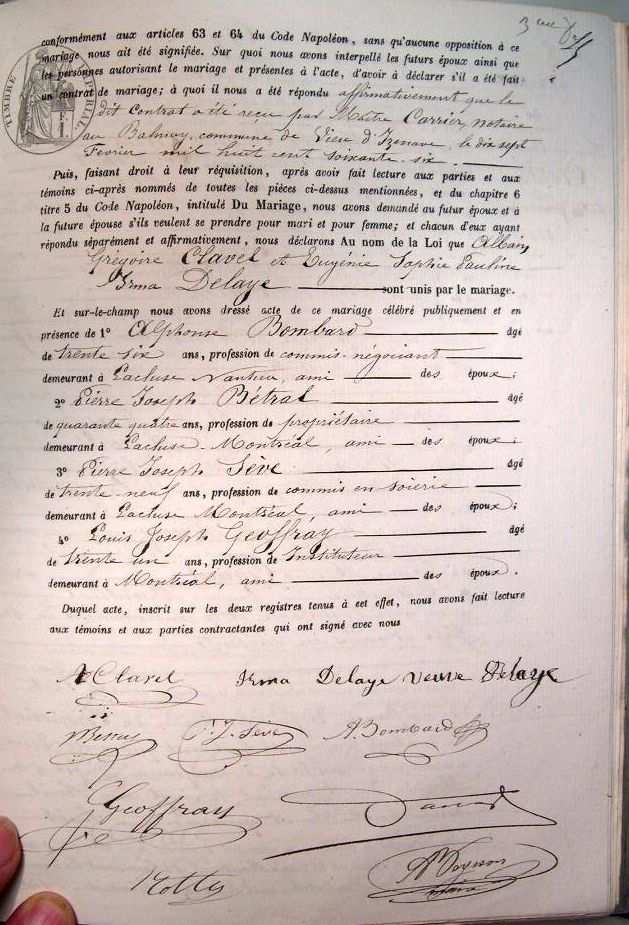 conformément aux articles 63 et 64 du Code Napoléon, sans qu'aucune opposition à ce
mariage nous ait été signifiée. Sur quoi nous avons interpellé les futurs époux ainsi que
les personnes autorisant le mariage et présentes à l'acte, d'avoir à déclarer s'il a été fait
un contrat de mariage; à quoi il nous a été répondu affirmativement que le
dit contrat a été reçu par Maître Carrier, notaire
au Balmay, commune de Vieu d'Izenave, le dix sept
Février mil huit cent soixante-six.
TIMBRE
F.
1
Puis, faisant droit à leur réquisition, après avoir fait lecture aux parties et aux
témoins ci-après nommés de toutes les pièces ci-dessus mentionnées, et du chapitre 6
titre 5 du Code Napoléon, intitulé Du Mariage, nous avons demandé au futur époux et à
la future épouse s'ils veulent se prendre pour mari et pour femme; et chacun d'eux ayant
répondu séparément et affirmativement, nous déclarons Au nom de la Loi que Albain
Grégoire Clavel et Eugénie Sophie Pauline
Irma Delaye sont unis par le mariage.
Et sur-le-champ nous avons dressé acte de ce mariage célébré publiquement et en
présence de 1º Alphonse Bombard âgé
de trente six ans, profession de commis-négociant
demeurant à Lacluse Nantua, ami des époux;
2º Pierre Joseph Bétrat âgé
de quarante quatre ans, profession de propriétaire
demeurant à Lacluse-Montréal, ami des époux;
3º Pierre Joseph Sève âgé
de trente-neuf ans, profession de commis en soierie
demeurant à Lacluse Montréal, ami des époux;
4º Louis Joseph Geoffray âgé
de trente un ans, profession de Instituteur
demeurant à Montréal, ami des époux.
Duquel acte, inscrit sur les deux registres tenus à cet effet, nous avons fait lecture
aux témoins et aux parties contractantes qui ont signé avec nous
A Clavel Irma Delaye veuve Delaye
P. J. Sève A. Bombard
Geoffray
maire